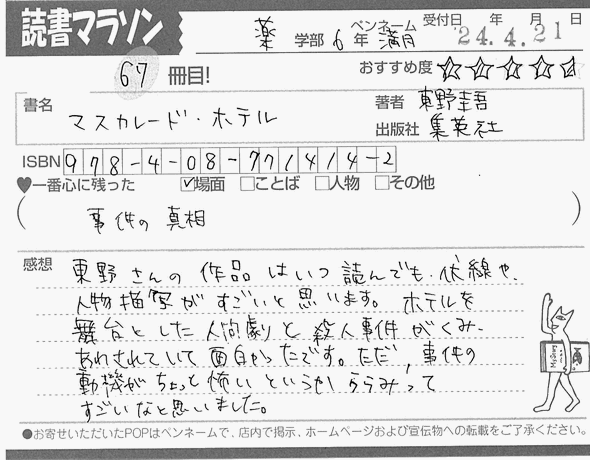 読書マラソン
薬 学部 6 年 ペンネーム 満月 受付日 年 月 日 '24.4.21
67 冊目! おすすめ度 ☆☆☆☆☆
書名 マスカレード・ホテル
著者 東野圭吾
出版社 集英社
ISBN 978-4-08-771414-2
♥一番心に残った ☑場面 □ことば □人物 □その他
( 事件の真相 )
感想 東野さんの作品はいつ読んでも、伏線や、
人物描写がすごいと思います。ホテルを
舞台とした人間劇と殺人事件がくみ
あわされていて面白かったです。ただ、事件の
動機がちょっと怖いというか、うらみって
すごいなと思いました。
●お寄せいただいたPOPはペンネームで、店内で掲示、ホームページおよび宣伝物への転載をご了承ください。